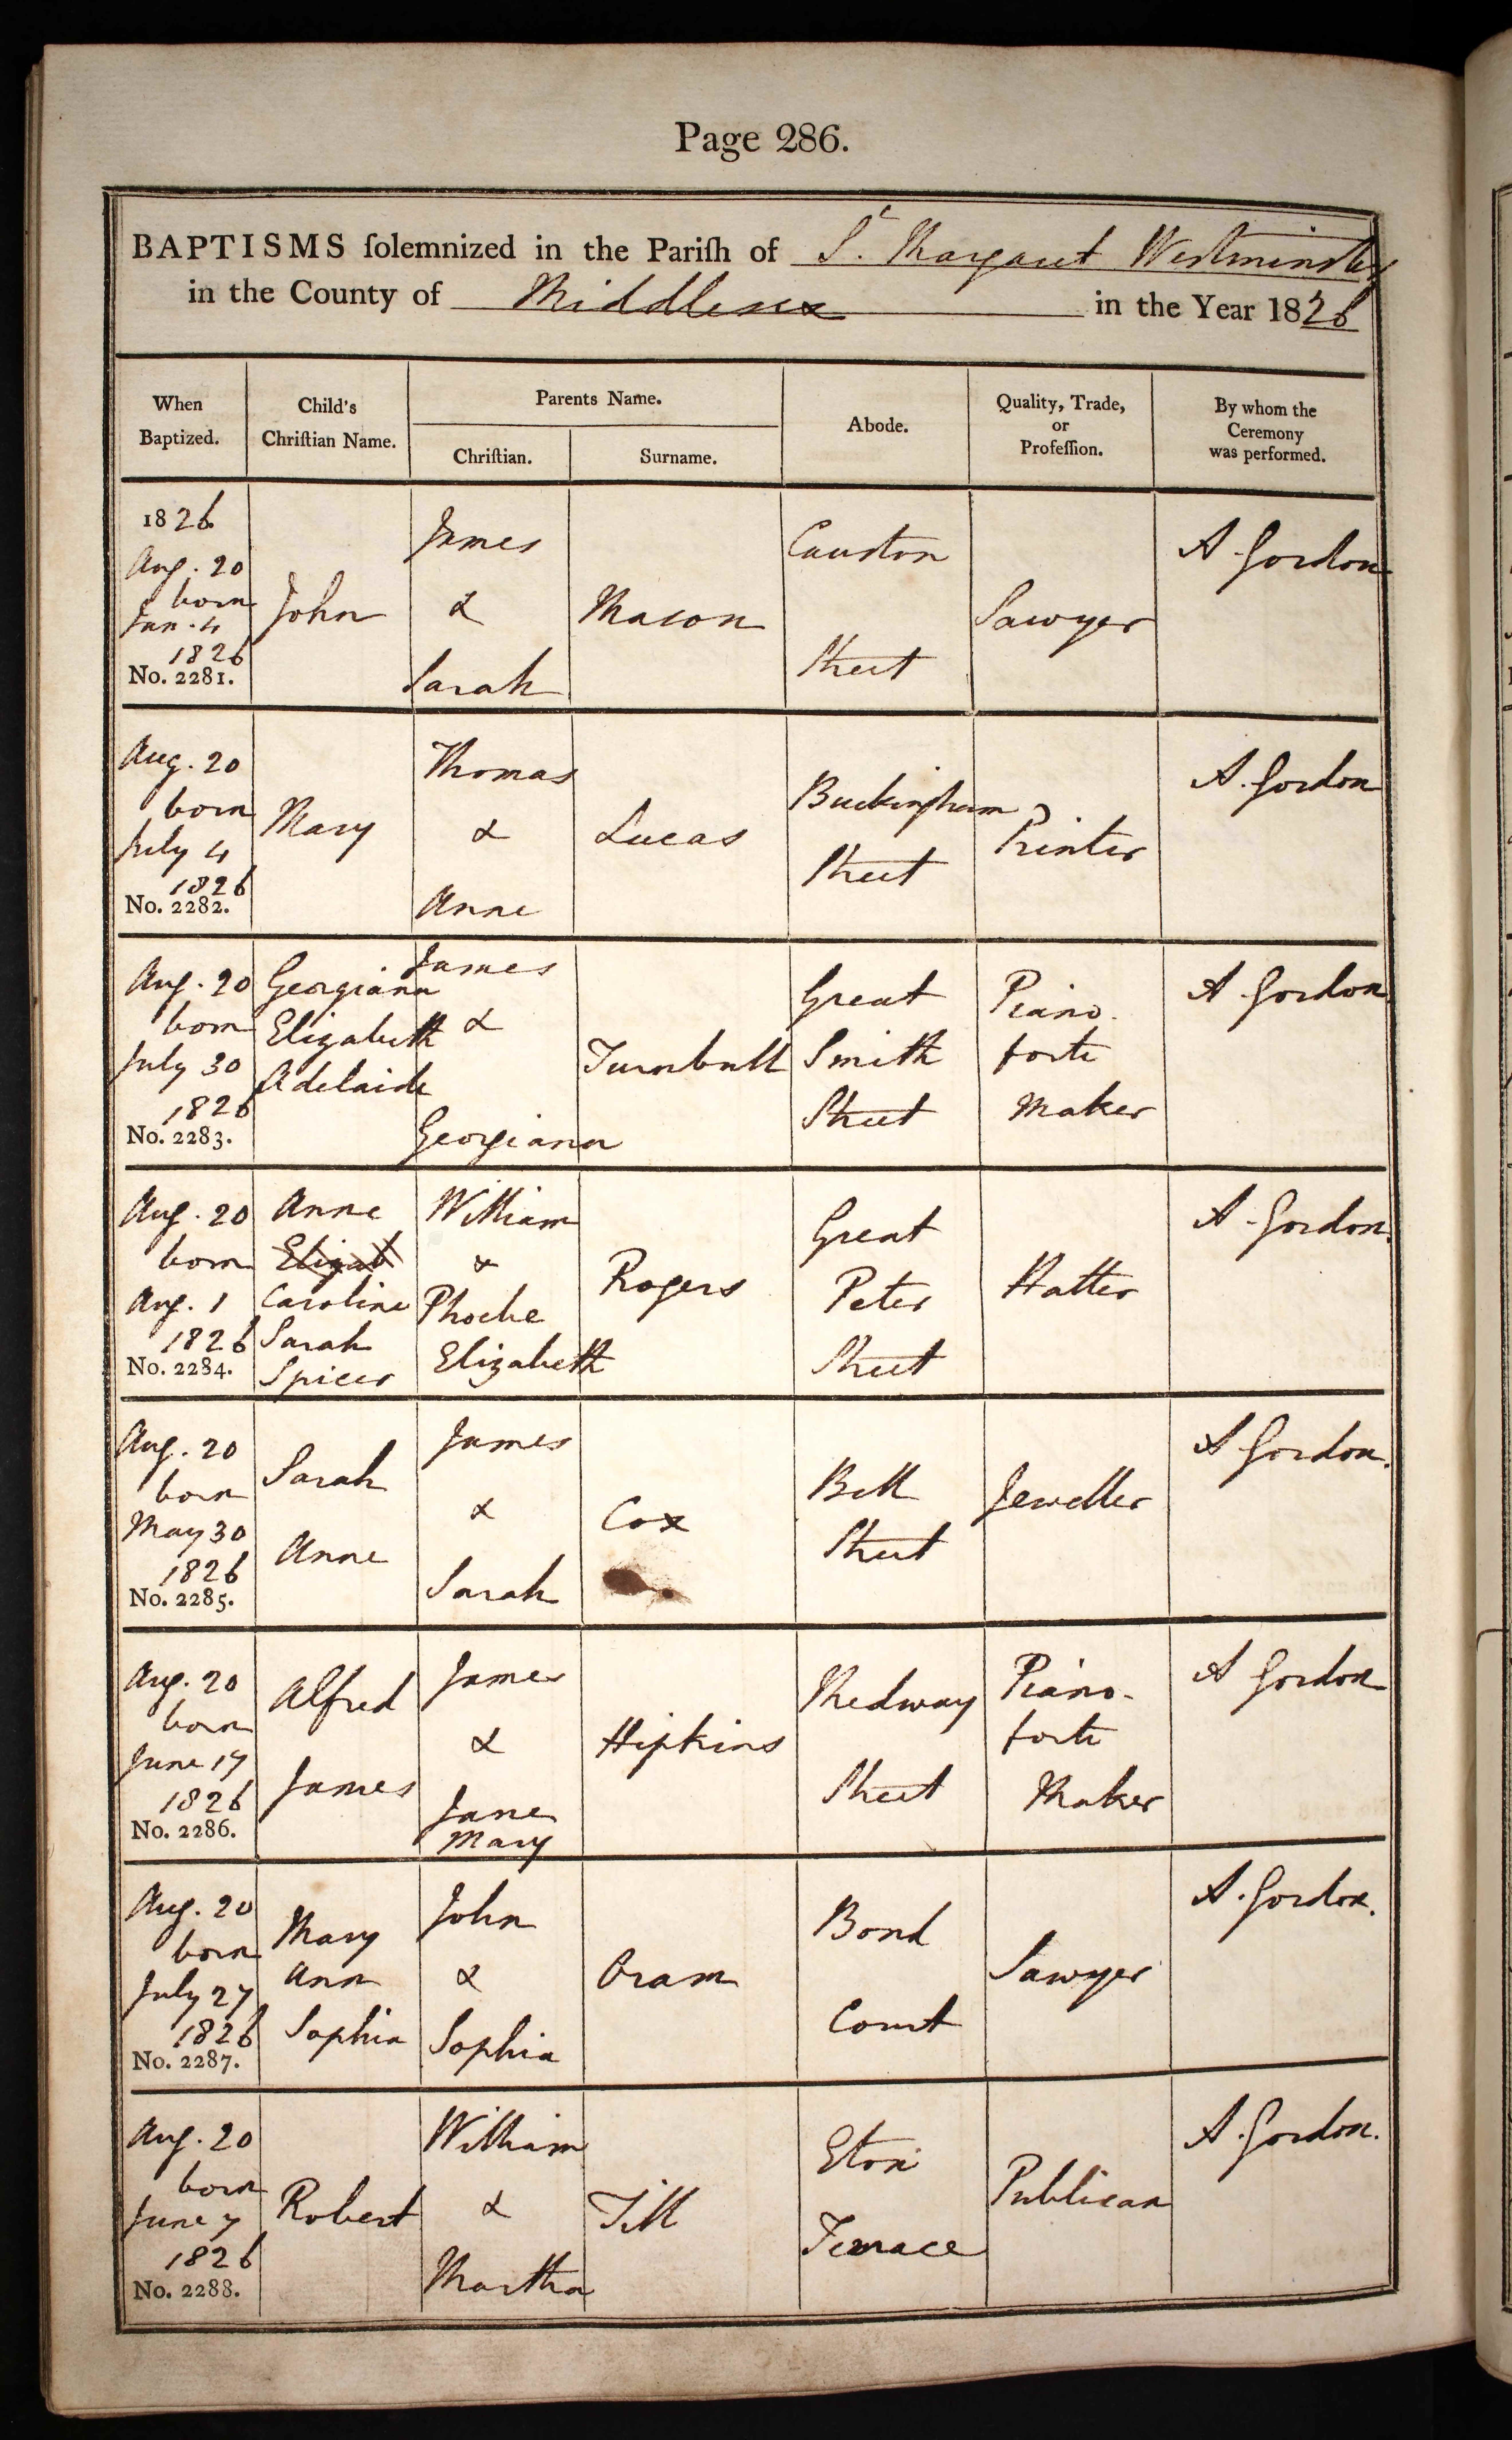 Page 286.
BAPTISMS ſolemnized in the Pariſh of St. Margaret Westminster
in the County of Middlesex in the Year 1826
When
Baptized.
Child's
Chriſtian Name.
Parents Name.
Chriſtian.
Surname.
Abode.
Quality, Trade,
or
Profeſſion.
By whom the
Ceremony
was performed.
1826
Aug. 20
born
Jan. 4
1826
No. 2281.
John
James
&
Sarah
Mason
Causton
Street
Sawyer
A Gordon
Aug. 20
born
July 4
1826
No. 2282.
Mary
Thomas
&
Anne
Lucas
Buckingham
Street
Printer
A. Gordon
Aug. 20
born
July 30
1826
No. 2283.
Georgiana
Elizabeth
Adelaide
James
&
Georgiana
Turnbull
Great
Smith
Street
Piano.
forte
Maker
A Gordon
Aug. 20
born
Aug. 1
1826
No. 2284.
Anne
Elizab
Caroline
Sarah
Spicer
William
&
Phoebe
Elizabeth
Rogers
Great
Peter
Street
Hatter
A. Gordon.
Aug. 20
born
May 30
1826
No. 2285.
Sarah
Anne
James
&
Sarah
Cox
Bell
Street
Jeweller
A Gordon.
Aug. 20
born
June 17
1826
No. 2286.
Alfred
James
James
&
Jane
Mary
Hipkins
Medway
Street
Piano-
forte
Maker
A Gordon
Aug. 20
born
July 27
1826
No. 2287.
Mary
Ann
Sophia
John
&
Sophia
Oram
Bond
Court
Sawyer
A. Gordon.
Aug. 20
born
June 7
1826
No. 2288.
Robert
William
&
Martha
Till
Eton
Terrace
Publican
A. Gordon.